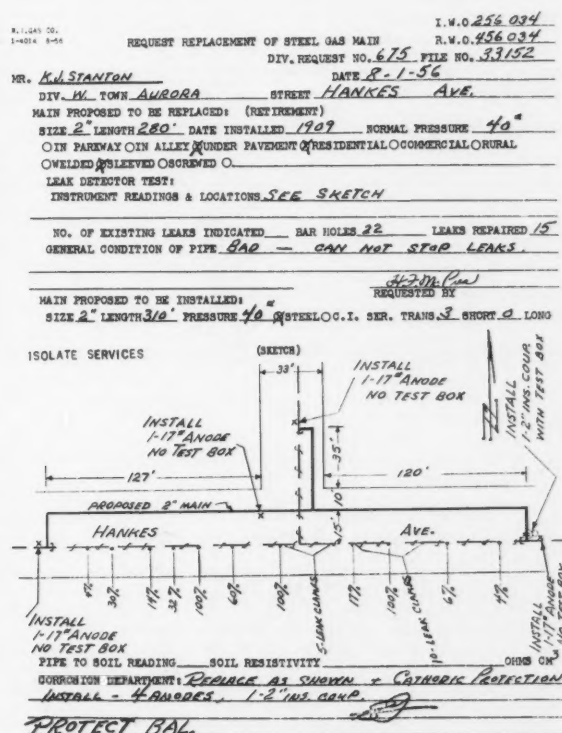 I.W.O. 256 034
W.I.GAS CO.
1-4014 8-56
REQUEST REPLACEMENT OF STEEL GAS MAIN R.W.O. 456 034
DIV. REQUEST NO. 675 FILE NO. 33152
MR. K.J. STANTON DATE 8-1-56
DIV. W. TOWN AURORA STREET HANKES AVE.
MAIN PROPOSED TO BE REPLACED: (RETIREMENT)
SIZE 2" LENGTH 280' DATE INSTALLED 1909 NORMAL PRESSURE 40#
○IN PARKWAY ○IN ALLEY ⊗UNDER PAVEMENT ⊗RESIDENTIAL ○COMMERCIAL ○RURAL
○WELDED ⊗SLEEVED ○SCREWED ○
LEAK DETECTOR TEST:
INSTRUMENT READINGS & LOCATIONS SEE SKETCH
NO. OF EXISTING LEAKS INDICATED BAR HOLES 22 LEAKS REPAIRED 15
GENERAL CONDITION OF PIPE BAD — CAN NOT STOP LEAKS.
REQUESTED BY
MAIN PROPOSED TO BE INSTALLED:
SIZE 2" LENGTH 310' PRESSURE 40# ⊗STEEL ○C.I. SER. TRANS. 3 SHORT 0 LONG
ISOLATE SERVICES
(SKETCH)
33'
INSTALL
1-17# ANODE
NO TEST BOX
INSTALL
1-2" INS. COUP.
WITH TEST BOX
INSTALL
1-17# ANODE
NO TEST BOX
35'
127'
120'
10'
PROPOSED 2" MAIN
15'
HANKES AVE.
4% 30% 14% 32% 100% 60% 100% 5-LEAK CLAMPS 17% 100% 10-LEAK CLAMPS 6% 4%
INSTALL
1-17# ANODE
NO TEST BOX
INSTALL
1-17# ANODE
NO TEST BOX
PIPE TO SOIL READING SOIL RESISTIVITY OHMS CM3
CORROSION DEPARTMENT: REPLACE AS SHOWN + CATHODIC PROTECTION
INSTALL - 4 ANODES, 1-2" INS. COUP.
PROTECT BAL.